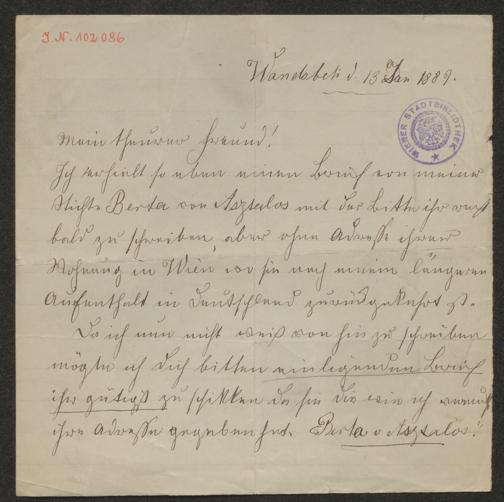 J.N. 102086
Wandsbek d. 13 Jan 1889.
WIENER STADTBIBLIOTHEK
Mein theurer Freund!
Ich erhielt so eben einen Brief von meiner
Nichte Berta von Asztalos mit der Bitte ihr recht
bald zu schreiben, aber ohne Adresse ihrer
Wohnung in Wien wo sie nach einem längeren
Aufenthalt in Deutschland zurückgekehrt ist.
Da ich nun nicht weiß wohin zu schreiben
mögte ich Dich bitten einliegenden Brief
ihr gütigst zu schikken da sie Dir wie ich
ihre Adresse gegeben hat. Berta v Asztalos!